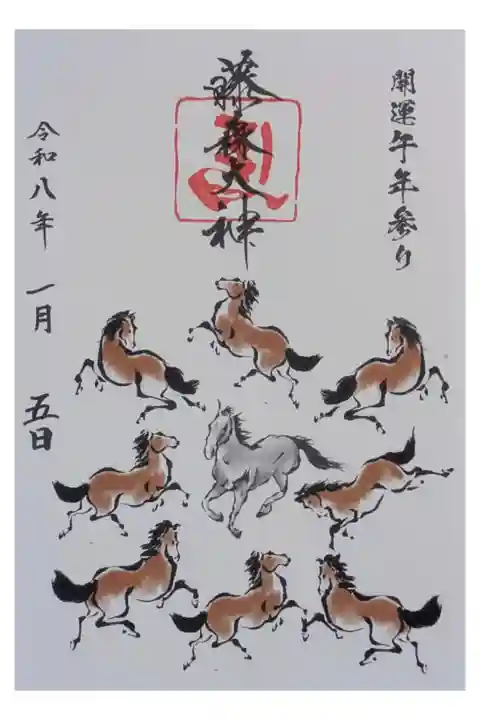 開運午年参り
藤森大神
令和八年 一月 五日